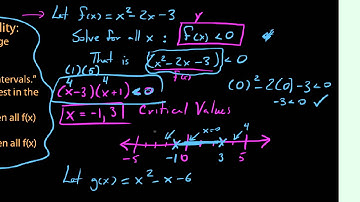 ality:
ge
ntervals."
est in the
en all f(x)
en all f(x)
→ Let f(x) = x² - 2x - 3
y
Solve for all x : f(x) < 0
That is (x² - 2x - 3) < 0
f(x)
(1)(5)
4 4
(x-3)(x+1) < 0
(0)² - 2(0) - 3 < 0
-3 < 0 ✓
x = -1, 3 Critical Values
x=0 4
-5 -1 0 3 5
Let g(x) = x² - x - 6